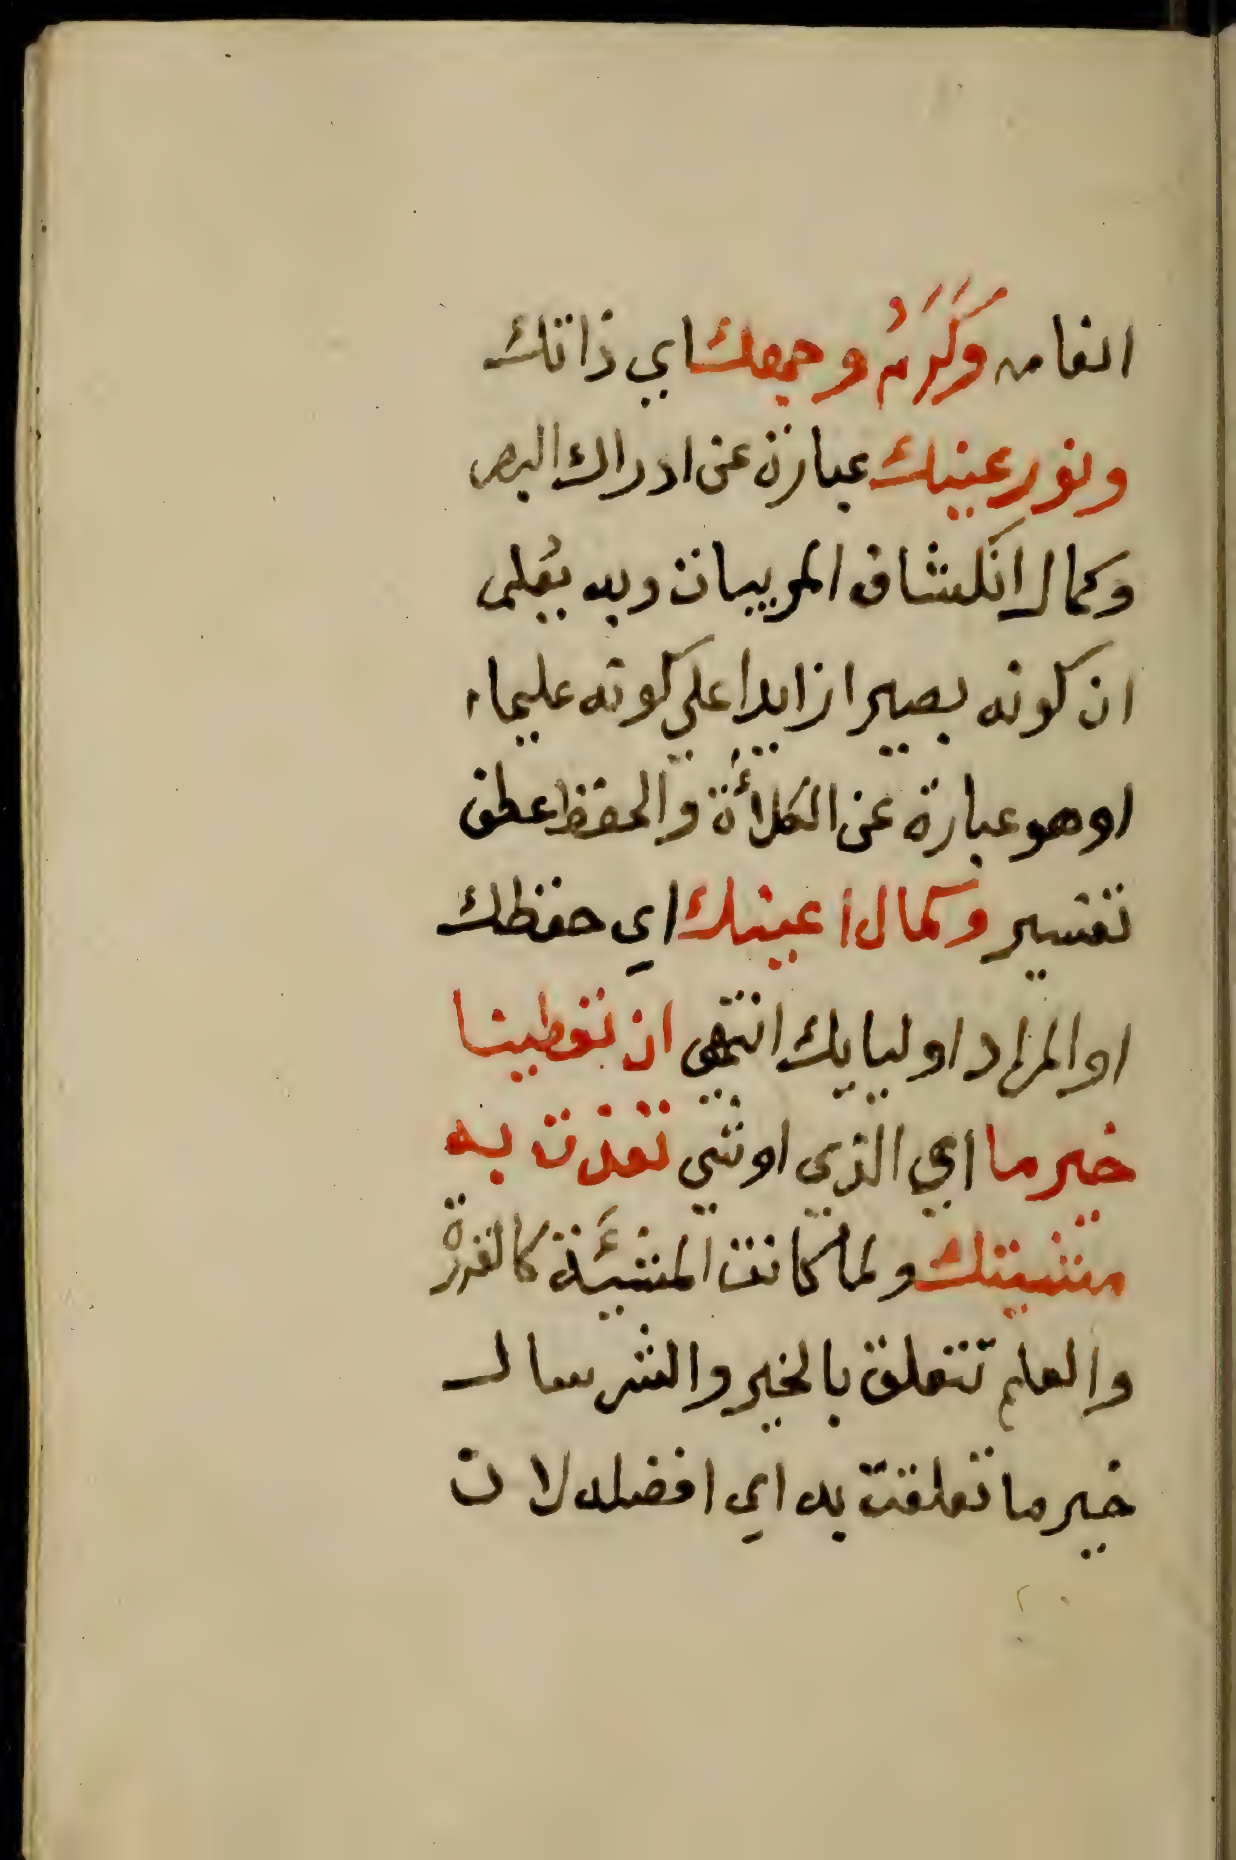 انعامه وَكَرَمُ وجهك اي ذاتك
ونور عينيك عبارة عن ادراك البصر
وكمال انكشاف المرييات وبه يعلم
ان كونه بصيرا زايدا علي كونه عليما
او هو عبارة عن الكلأة والحفظ عطف
تفسير وكمال اعينك اي حفظك
او المراد اوليايك انتهي ان تعطينا
خير ما اي الذي او شي نفذت به
مشيتك ولما كانت المشيئة كالقدرة
والعلم تتعلق بالخير والشر سال
خير ما تعلقت به اي افضله لان